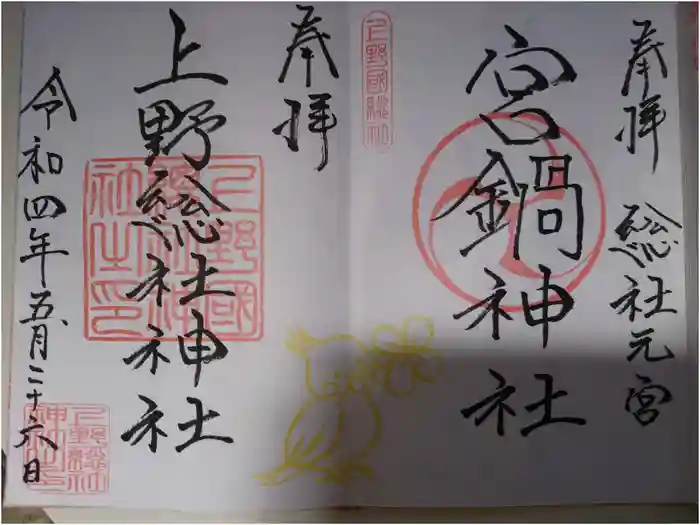 奉拝
総社元宮
宮鍋神社
上野國総社
奉拝
上野総社神社
上野國
総社神
社之印
令和四年五月二十六日
上野総社
神社